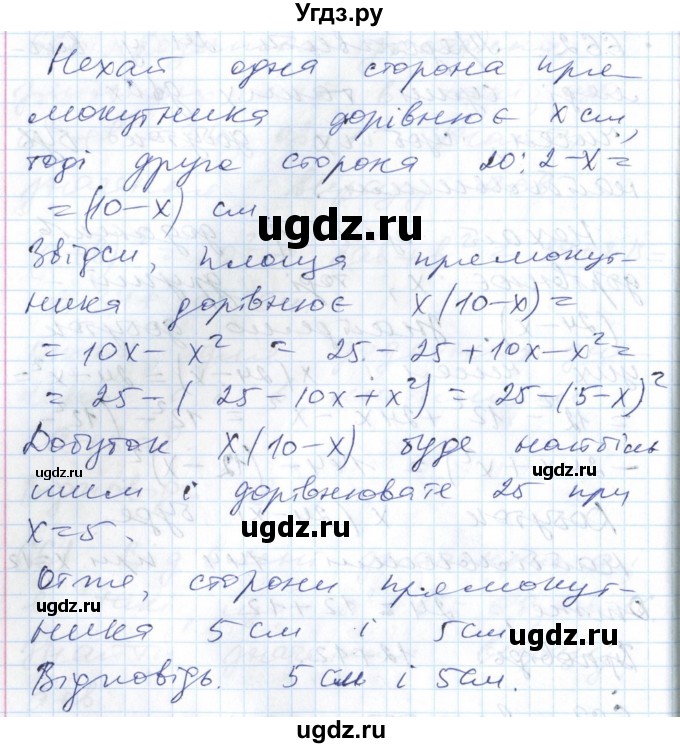 Угдз.ру
Нехай одна сторона пря
мокутника дорівнює x см,
тоді друга сторона 20:2-x=
=(10-x) см
ugdz.ru
Звідси, площа прямокут-
ника дорівнює x(10-x)=
=10x-x² = 25-25+10x-x²=
= 25-(25-10x+x²) = 25-(5-x)²
Добуток x·(10-x) буде найбіль
ugdz.ru
ugdz.ru
шим і дорівнювате 25 при
ugdz.ru
x=5.
Отже, сторони прямокут-
ugdz.ru
ника 5 см і 5см
ugdz.ru
Відповідь. 5 см і 5см.
ugdz.ru